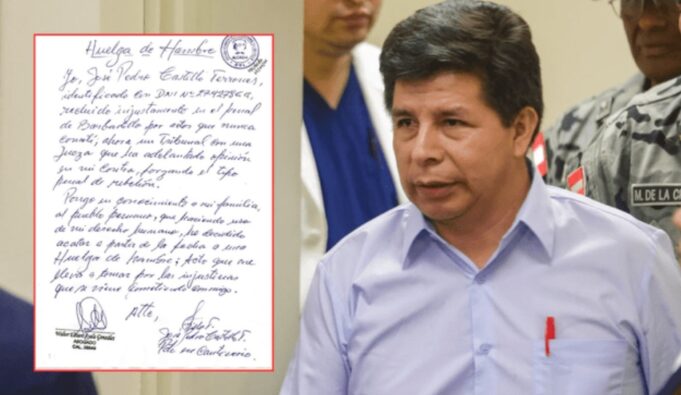 Huelga de Hambre
Yo, José Pedro Castillo Terrones,
identificado con DNI Nº 27427864,
recluido injustamente en el penal
de Barbadillo por actos que nunca
cometí, ahora un Tribunal con una
Jueza que ha adelantado opinión
en mi contra, forzando el tipo
penal de rebelión.
Pongo en conocimiento a mi familia,
al pueblo peruano, que haciendo uso
de mi derecho humano, he decidido
acatar a partir de la fecha a una
Huelga de Hambre; Acto que me
lleva a tomar por las injusticias
que se viene cometiendo conmigo.
Atte,
José Pedro Castillo T.
ABOGADO
M. DE LA C